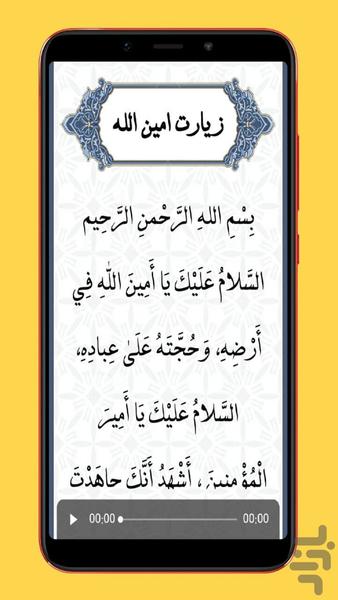 زیارت امین الله
بِسْمِ اللهِ الرَّحْمنِ الرَّحِيمِ
السَّلامُ عَلَيْكَ يَا أَمِينَ اللهِ فِي
أَرْضِهِ، وَحُجَّتَهُ عَلَىٰ عِبادِهِ،
السَّلامُ عَلَيْكَ يَا أَمِيرَ
الْمُؤْمِنِينَ، أَشْهَدُ أَنَّكَ جاهَدْتَ
00:00 00:00
بازار